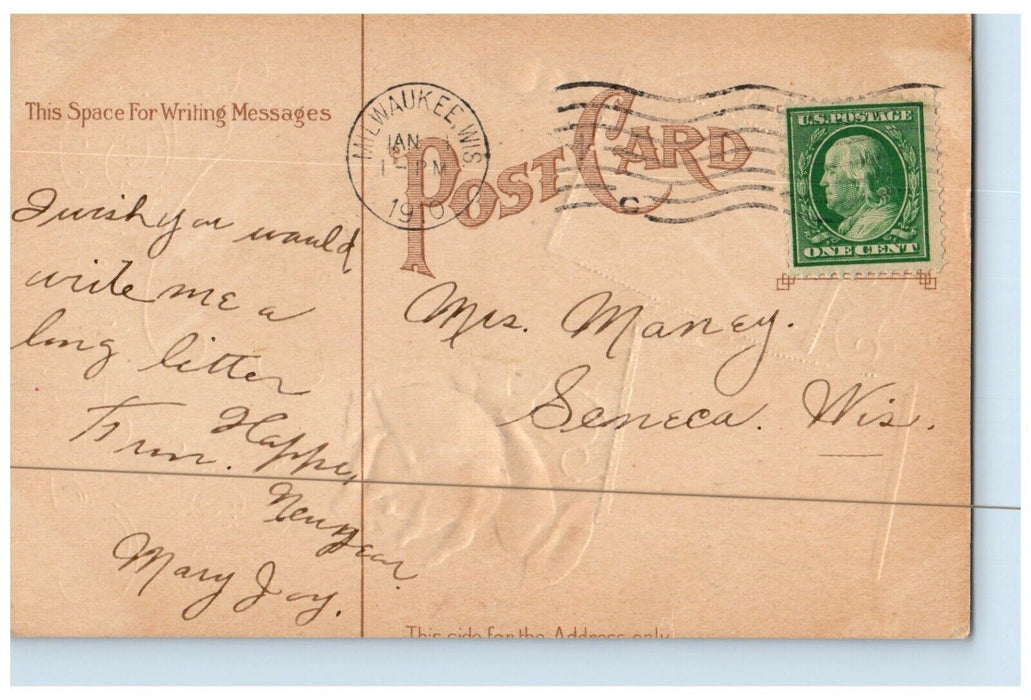 This Space For Writing Messages
MILWAUKEE, WIS.
JAN
1910
POST CARD
C
U.S. POSTAGE
ONE CENT
I wish you would
write me a
long litter
Happy
New Year.
Mary Joy.
Mrs. Maney.
Seneca. Wis.
This side for the Address only